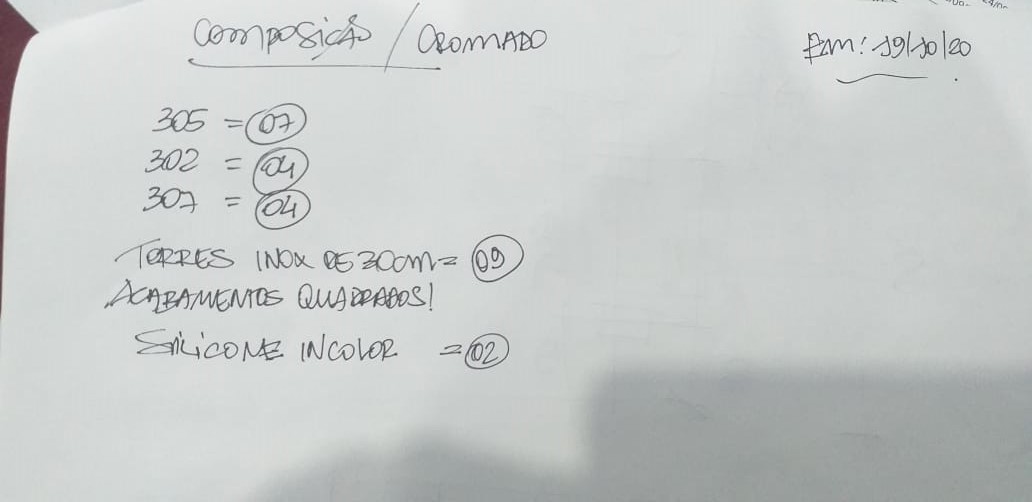 COMPOSIÇÃO / CROMADO
Em: 19/10/20
305 = 07
302 = 04
307 = 04
TORRES INOX DE 30cm = 09
ACABAMENTOS QUADRADOS!
SILICONE INCOLOR = 02